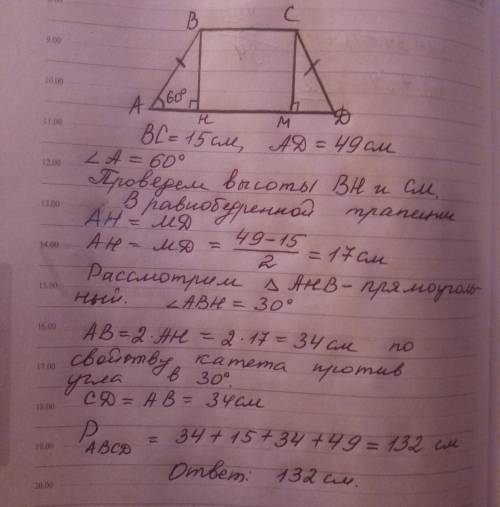 B C
9.00
10.00
A 60° H M D
11.00
BC = 15 см, AD = 49 см
12.00
∠A = 60°
Проведем высоты BH и CM.
13.00
В равнобедренной трапеции
AH = MD
14.00
AH = MD = \frac{49-15}{2} = 17 см
15.00
Рассмотрим △ AHB - прямоуголь-
ный. ∠ABH = 30°
16.00
AB = 2·AH = 2·17 = 34 см по
свойству катета против
17.00
угла в 30°.
CD = AB = 34 см
18.00
P ABCD = 34 + 15 + 34 + 49 = 132 см
19.00
Ответ: 132 см.
20.00